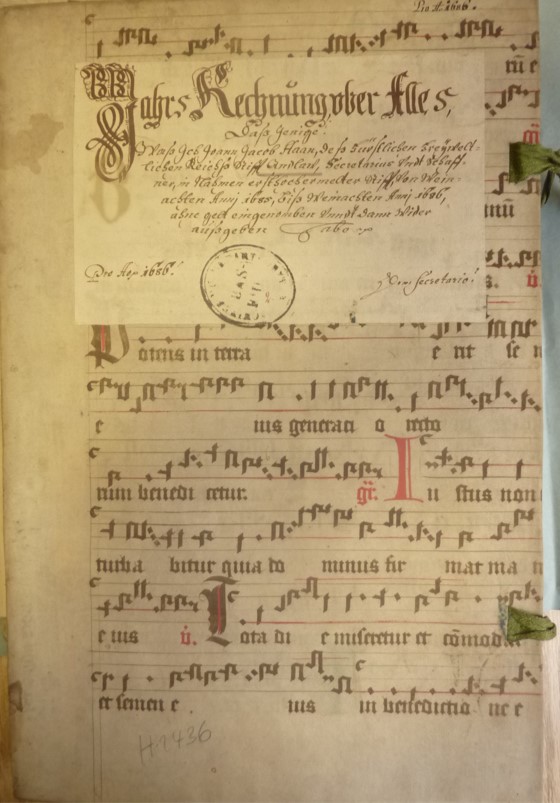 Lit. A. 1686.
Jahrs Rechnung, vber Alles,
Dass Jenige
Wass Ich Joann Jacob Haan, dess Fürstlichen Freyadel-
lichen Reichss Stifft Andlau, Secretarius Vndt Schaff-
ner, in Nahmen ersthochermelter Stifft Von Wein-
achten Anni 1685, biss Weinachten Anni 1686,
ahne gelt eingenomben Vnndt dann Wider
aussgeben habe
Pro Ao 1686.
Vom Secretario.
Potens in terra e rit se
e ius generati o recto
rum benedi cetur. gr. In stus non
turba bitur quia do minus fir mat ma
e ius v. Tota di e miseretur et cōmodat
et semen e ius in benedictio ne e
H 1436